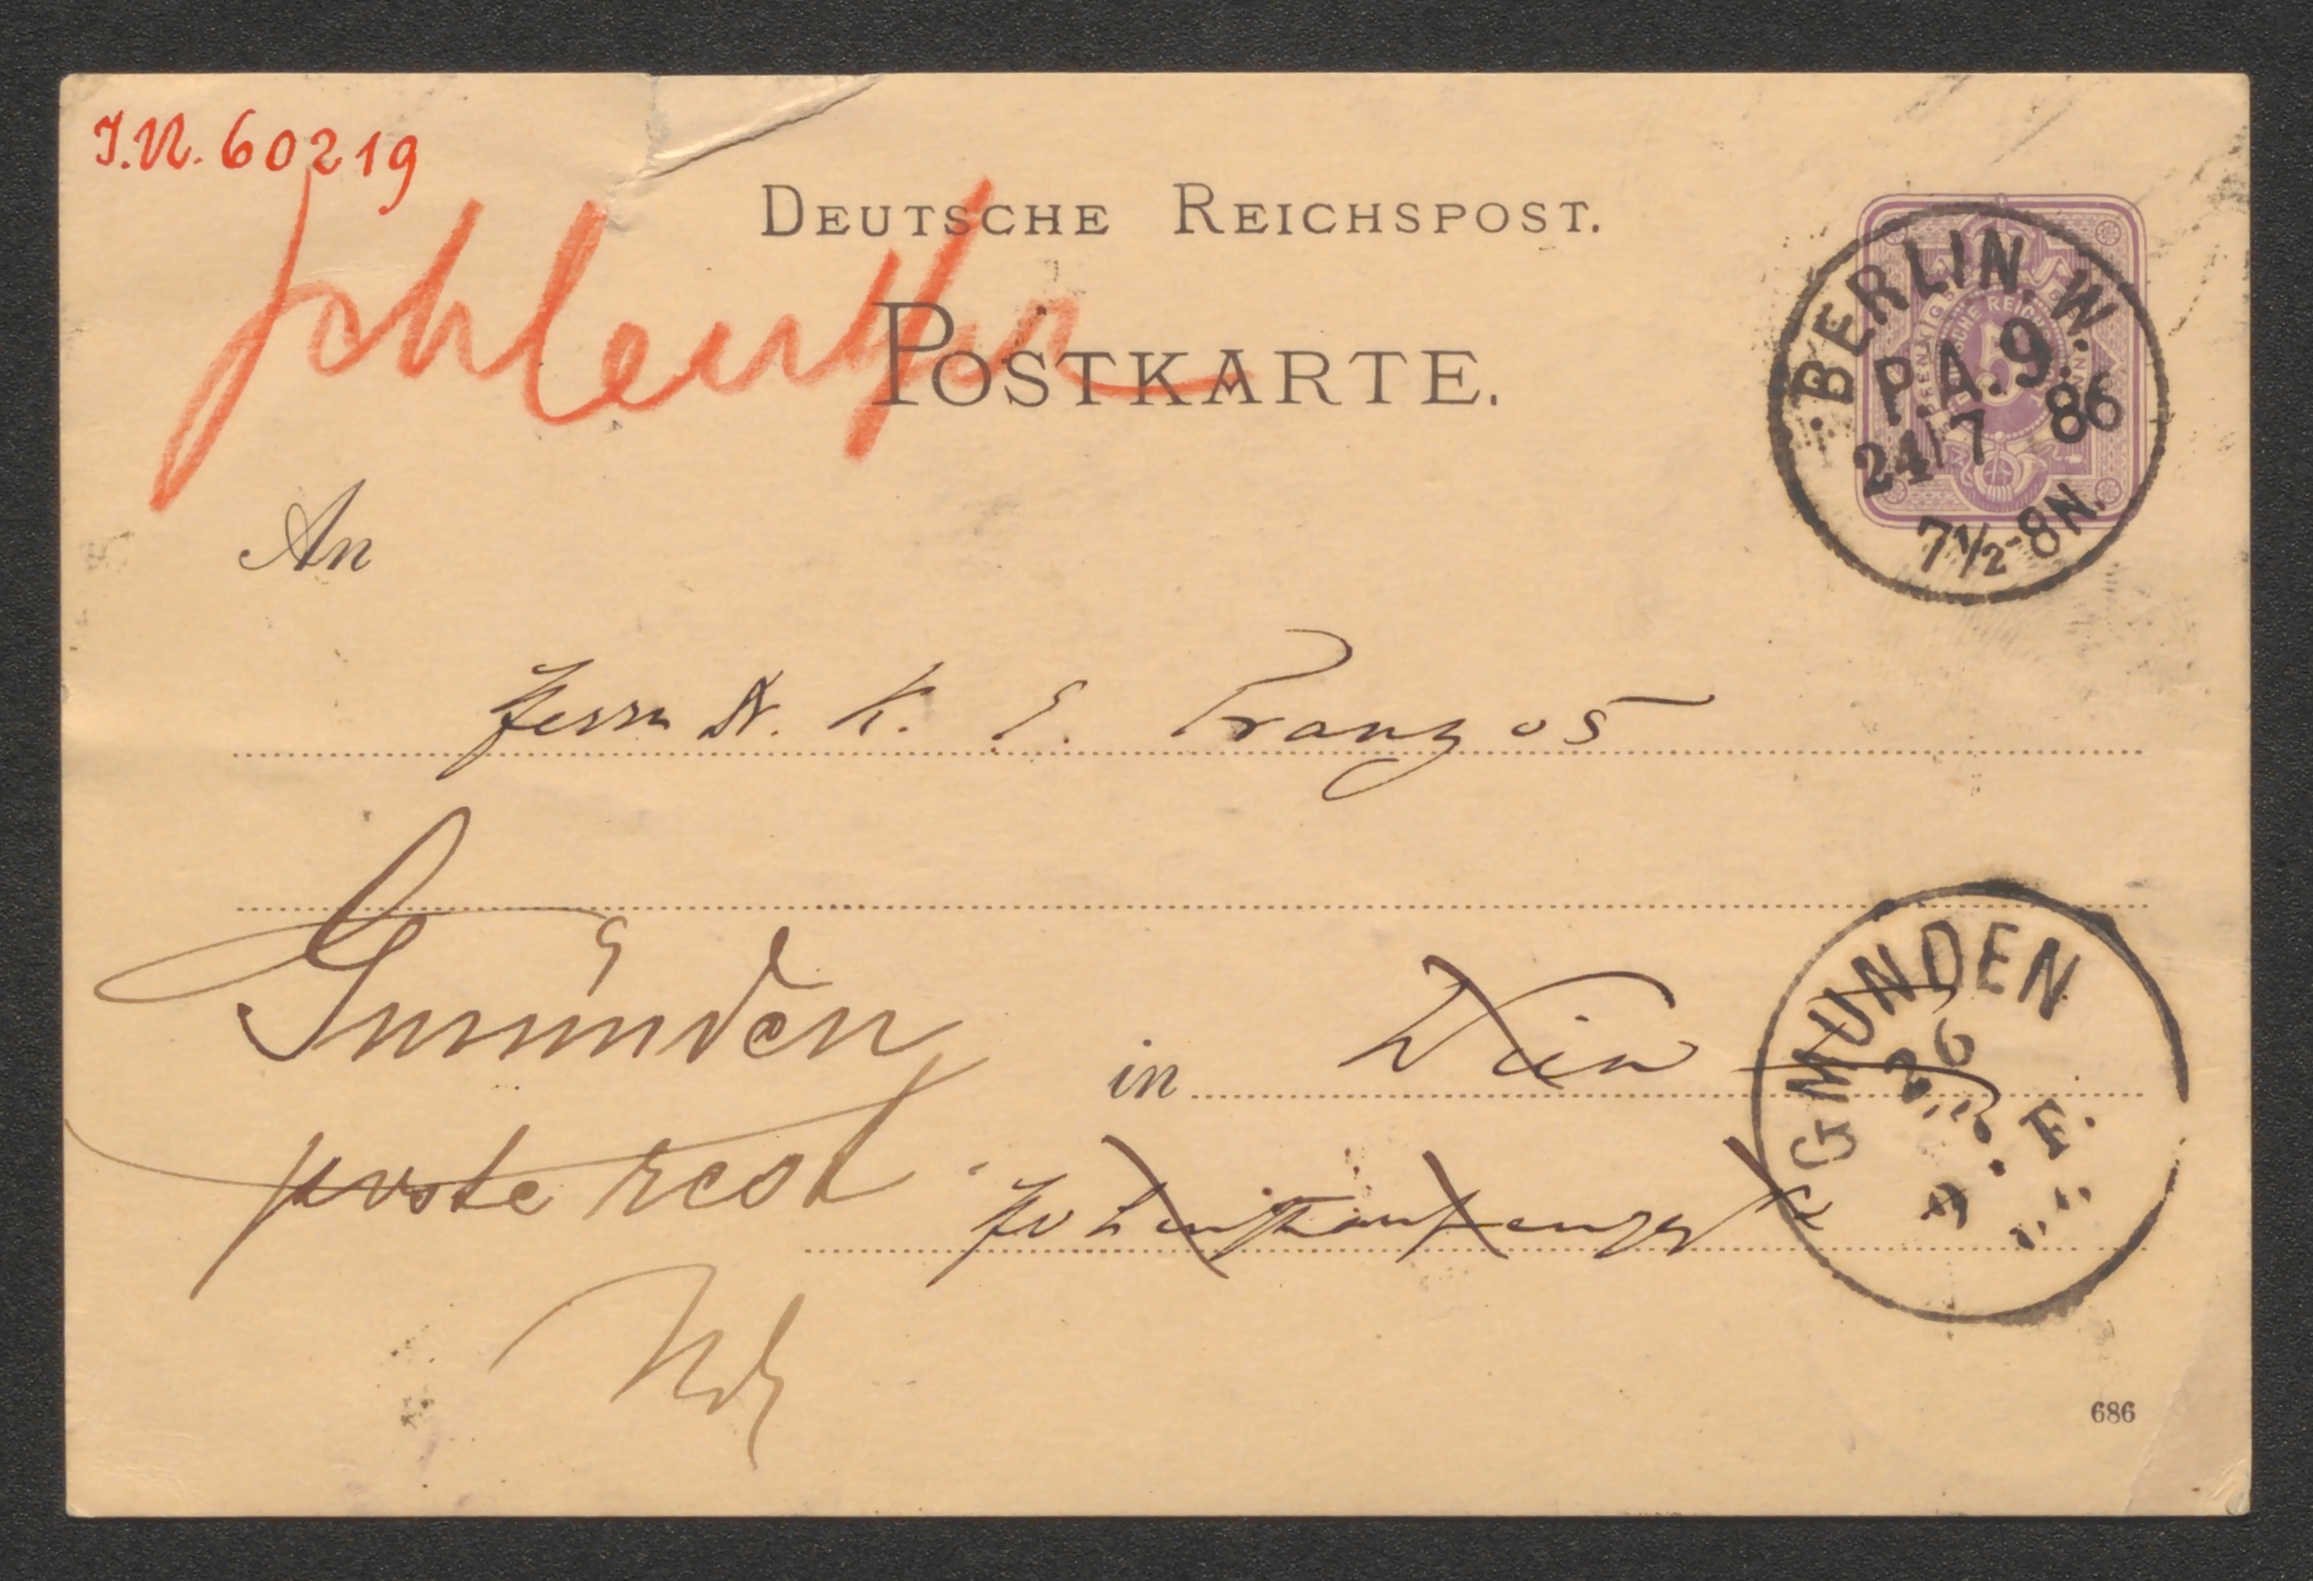 J.N. 60219
Schlenther
DEUTSCHE REICHSPOST.
POSTKARTE.
BERLIN. W.
P.A.9.
24/7 86
7½-8N.
An
Herrn Dr. K. E. Franzos
Gmünden
in Wien
poste rest
Hohenstaufengasse
GMUNDEN
26
F.
686